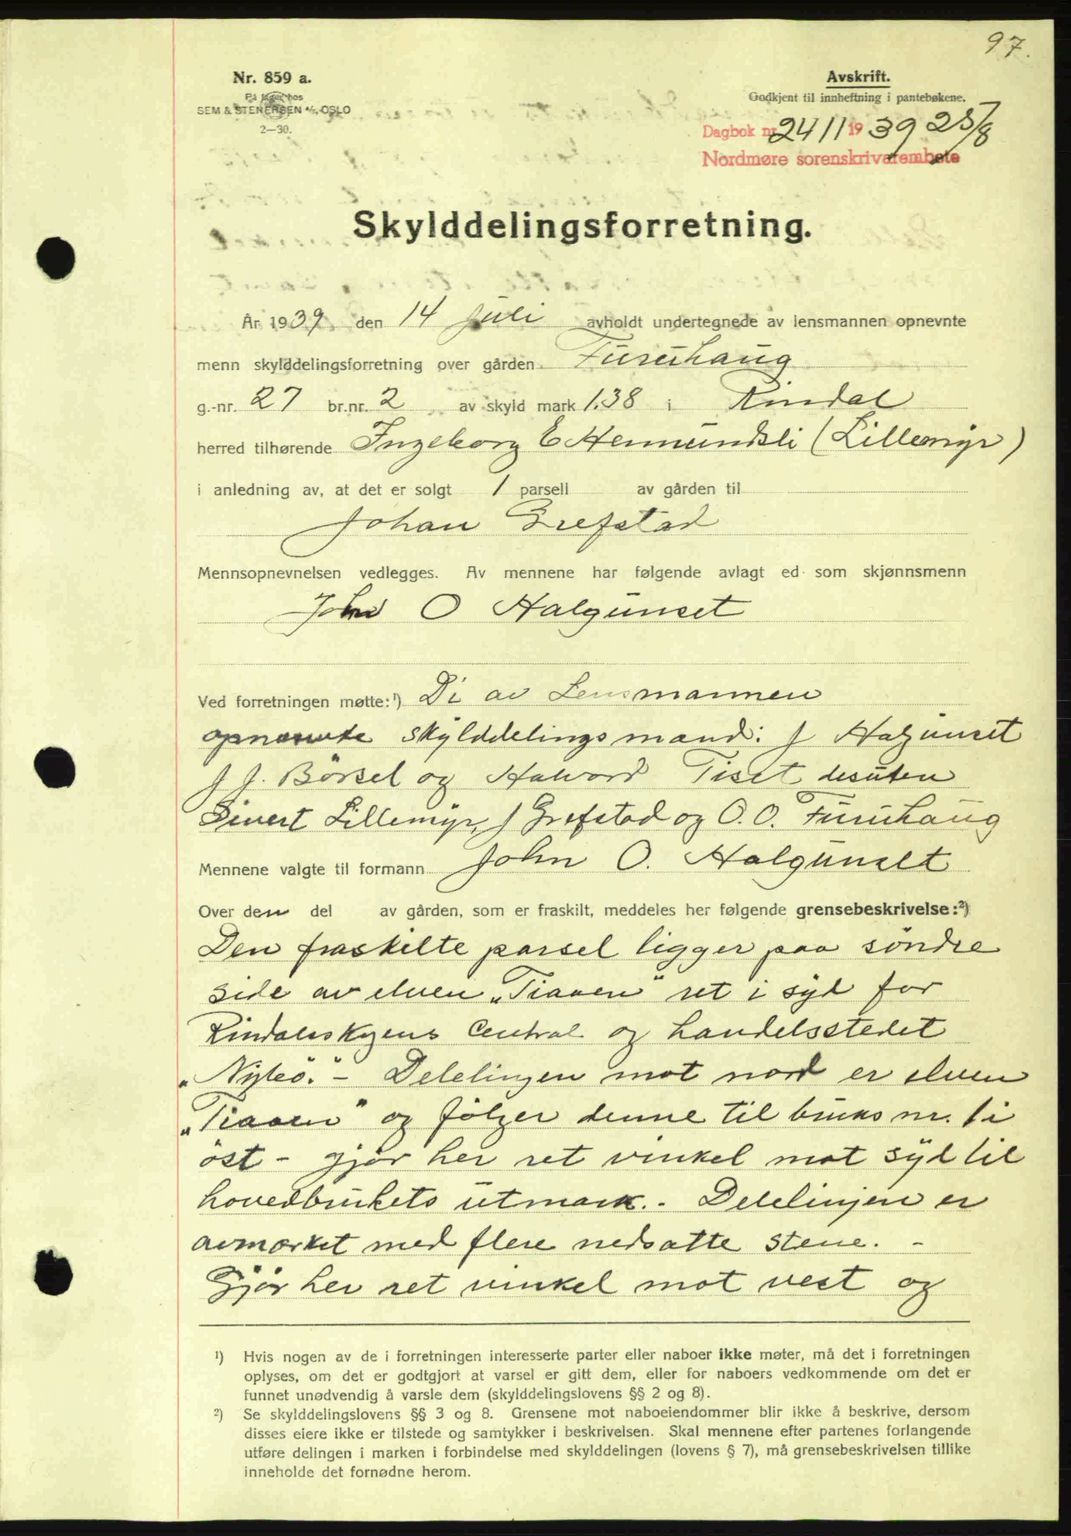 97.
Nr. 859 a.
På lager hos
SEM & STENERSEN A/S, OSLO
2—30.
Avskrift.
Godkjent til innheftning i pantebøkene.
Dagbok nr. 2411 1939 25/8
Nordmøre sorenskriverembete
Skylddelingsforretning.
År 1939 den 14 Juli avholdt undertegnede av lensmannen opnevnte
menn skylddelingsforretning over gården Furuhaug
g.-nr. 27 br.nr. 2 av skyld mark 1.38 i Rindal
herred tilhørende Ingeborg E Hermundsli (Lillemyr)
i anledning av, at det er solgt 1 parsell av gården til
Johan Grefstad
Mennsopnevnelsen vedlegges. Av mennene har følgende avlagt ed som skjønnsmenn
John O Halgunset
Ved forretningen møtte:¹) Di av Lensmannen
opnævnte skylddelingsmænd: J Halgunset
J J. Börset og Halvord Tiset desuten
Sivert Lillemyr, J Grefstad og O. O. Furuhaug
Mennene valgte til formann John O. Halgunset
Over den del av gården, som er fraskilt, meddeles her følgende grensebeskrivelse:²)
Den fraskilte parsel ligger paa söndre
side av elven „Tiaaen" ret i syd for
Rindalsskogens Central og handelsstedet
„Nybö." - Delelinjen mot nord er elven
„Tiaaen" og fölger denne til bruks nr. 1 i
öst - gjör her ret vinkel mot syd til
hovedbrukets utmark. - Delelinjen er
avmærket med flere nedsatte stene. -
Gjör her ret vinkel mot vest og
¹) Hvis nogen av de i forretningen interesserte parter eller naboer ikke møter, må det i forretningen
oplyses, om det er godtgjort at varsel er gitt dem, eller for naboers vedkommende om det er
funnet unødvendig å varsle dem (skylddelingslovens §§ 2 og 8).
²) Se skylddelingslovens §§ 3 og 8. Grensene mot naboeiendommer blir ikke å beskrive, dersom
disses eiere ikke er tilstede og samtykker i beskrivelsen. Skal mennene efter partenes forlangende
utføre delingen i marken i forbindelse med skylddelingen (lovens § 7), må grensebeskrivelsen tillike
inneholde det fornødne herom.